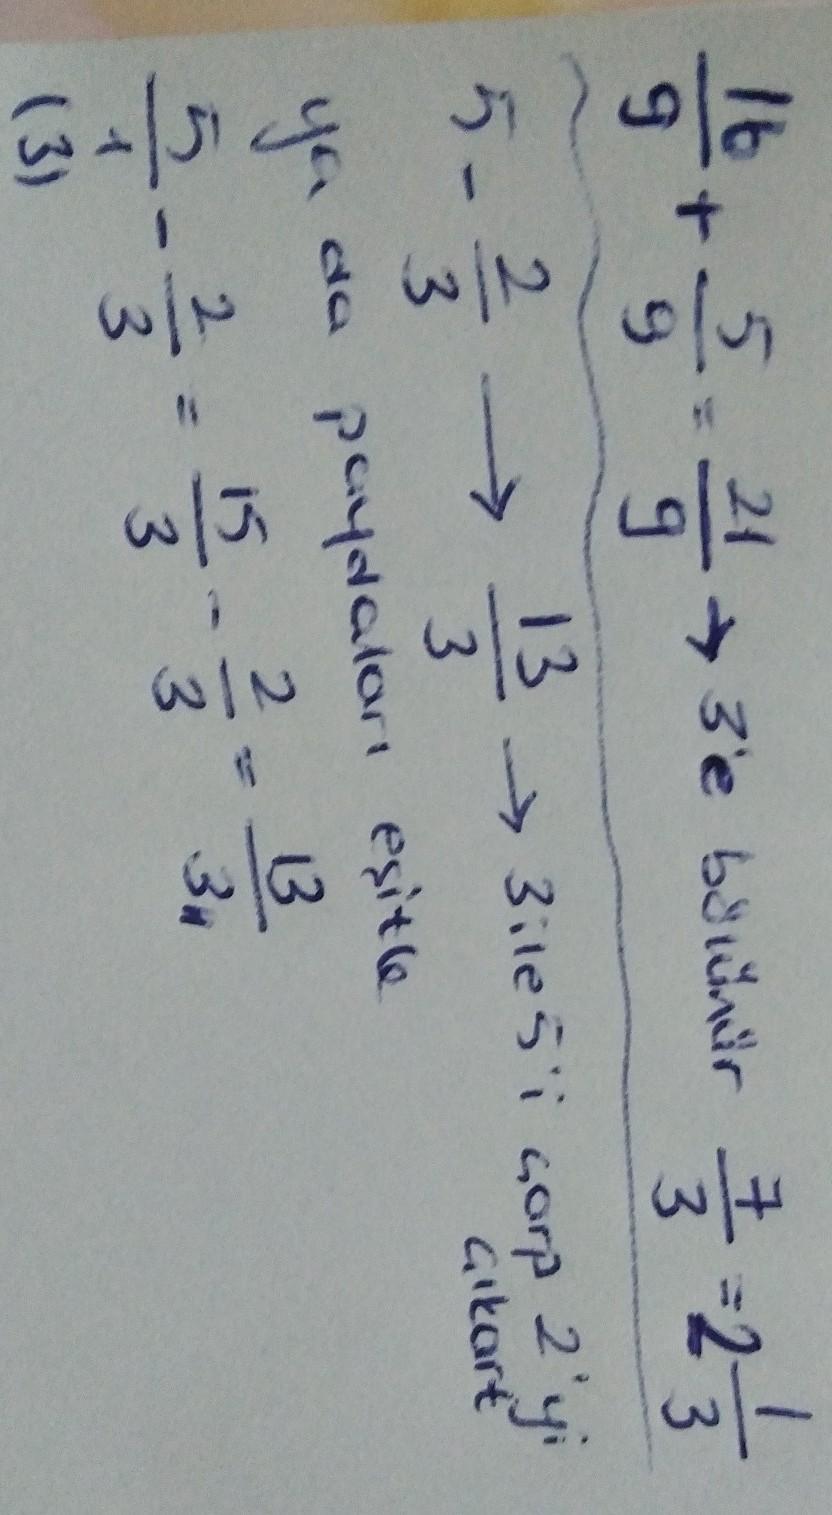 16/9 + 5/9 = 21/9 → 3'e bölünür 7/3 = 2 1/3
5 - 2/3 → 13/3 → 3 ile 5'i çarp 2'yi
çıkart
ya da paydaları eşitle
5/1 - 2/3 = 15/3 - 2/3 = 13/3 "
(3)